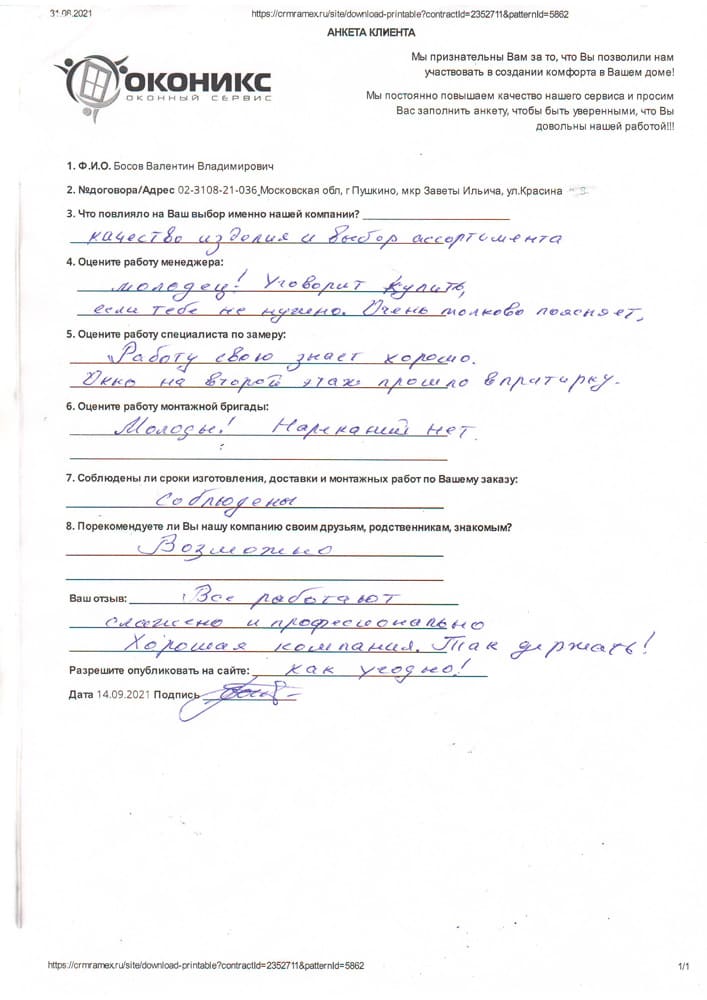 31.08.2021 https://crmramex.ru/site/download-printable?contractId=2352711&patternId=5862
АНКЕТА КЛИЕНТА
Мы признательны Вам за то, что Вы позволили нам
участвовать в создании комфорта в Вашем доме!
ОКОНИКС
ОКОННЫЙ СЕРВИС
Мы постоянно повышаем качество нашего сервиса и просим
Вас заполнить анкету, чтобы быть уверенными, что Вы
довольны нашей работой!!!
1. Ф.И.О. Босов Валентин Владимирович
2. №договора/Адрес 02-3108-21-036 Московская обл, г Пушкино, мкр Заветы Ильича, ул.Красина
3. Что повлияло на Ваш выбор именно нашей компании?
качество изделия и выбор ассортимента
4. Оцените работу менеджера:
молодец! Уговорит купить,
если тебе не нужно. Очень толково поясняет,
5. Оцените работу специалиста по замеру:
Работу свою знает хорошо.
Окно на второй этаж прошло впритирку.
6. Оцените работу монтажной бригады:
Молодцы! Нареканий нет.
7. Соблюдены ли сроки изготовления, доставки и монтажных работ по Вашему заказу:
Соблюдены
8. Порекомендуете ли Вы нашу компанию своим друзьям, родственникам, знакомым?
Возможно
Ваш отзыв: Все работают
слажено и профессионально
Хорошая компания. Так держать!
Разрешите опубликовать на сайте: как угодно!
Дата 14.09.2021 Подпись
https://crmramex.ru/site/download-printable?contractId=2352711&patternId=5862 1/1